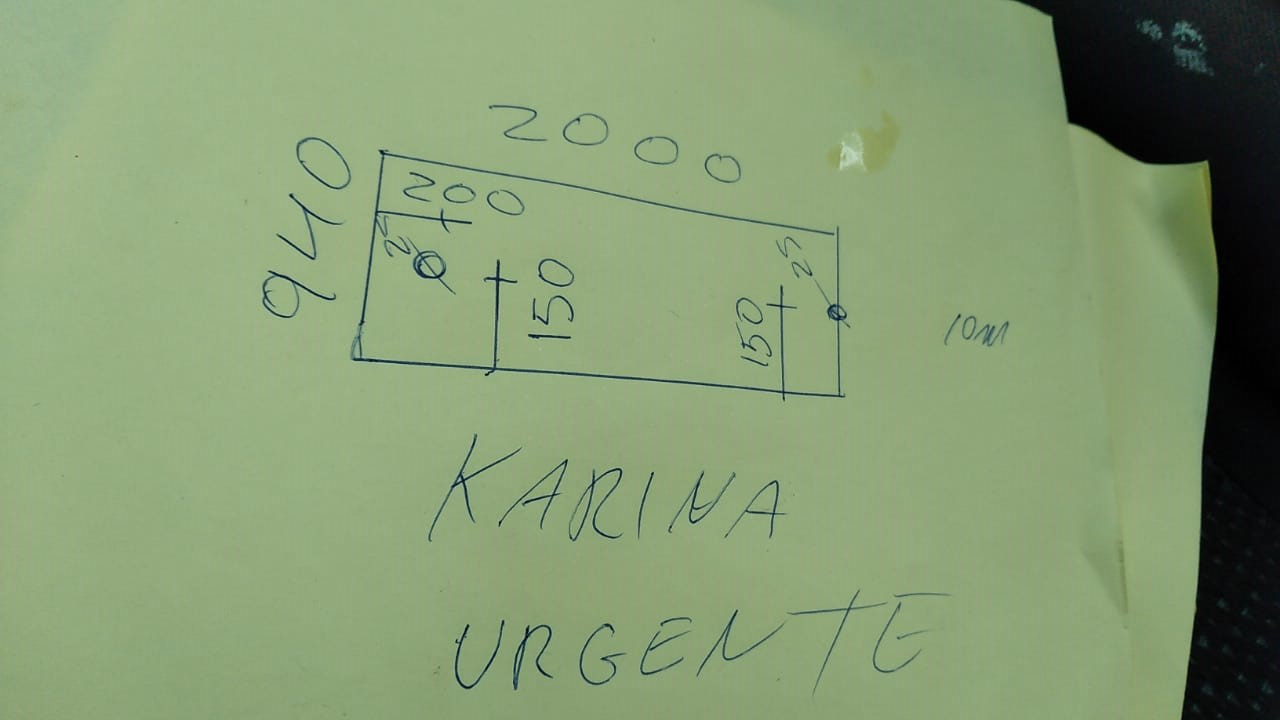 2000
940
200
25
25
150
150
10m
KARINA
URGENTE